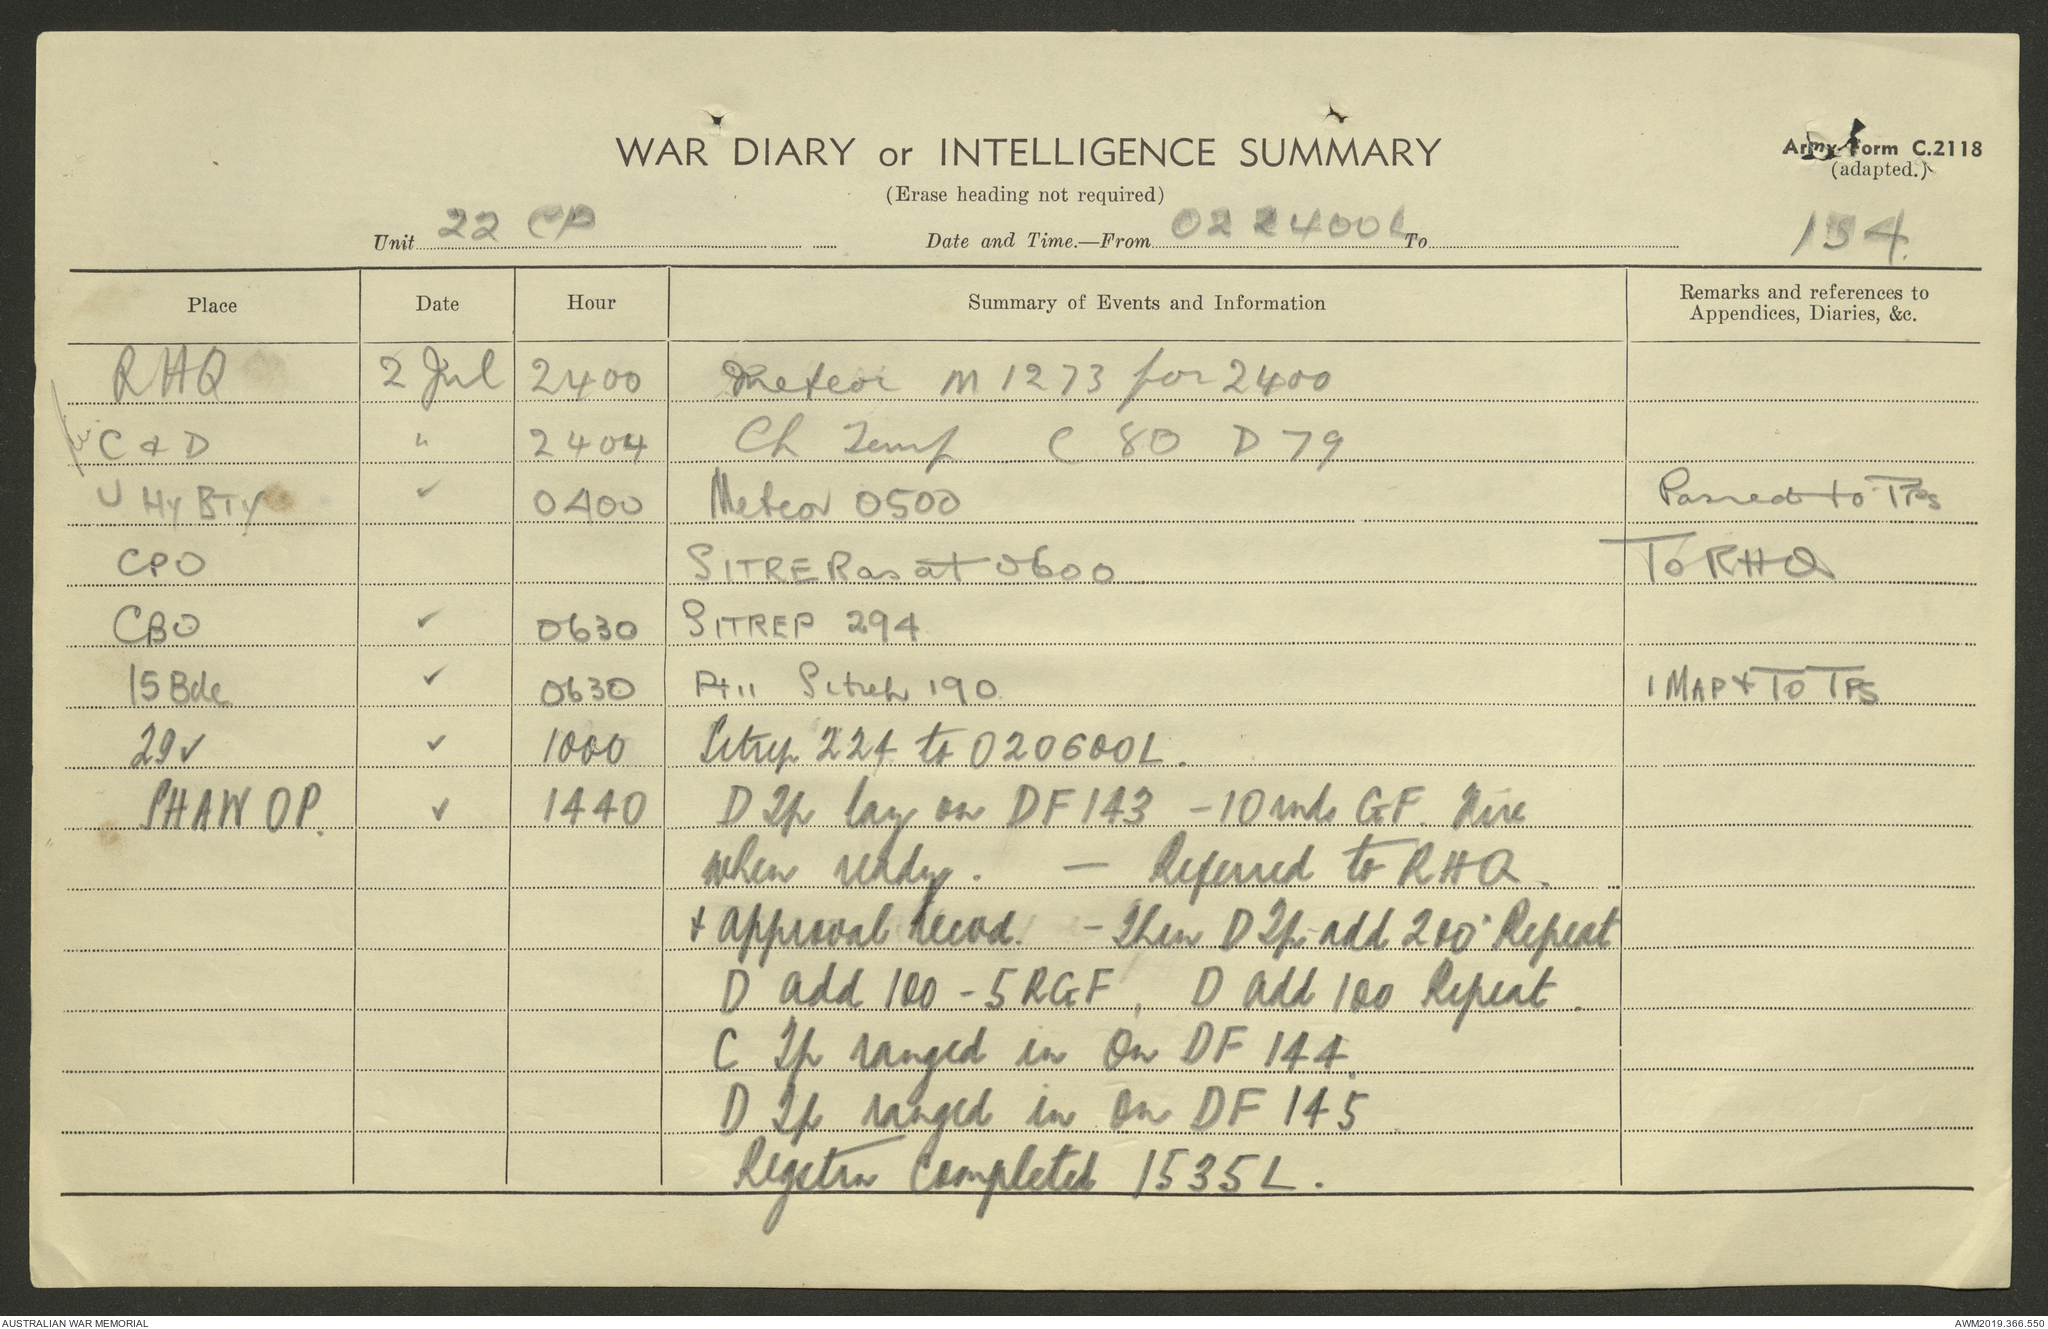 WAR DIARY or INTELLIGENCE SUMMARY
Army Form C.2118
(adapted.)
(Erase heading not required)
Unit 22 CP Date and Time.—From 02 2400L To 154.
Place Date Hour Summary of Events and Information Remarks and references to Appendices, Diaries, &c.
RHQ 2 Jul 2400 Meteor M 1273 for 2400
C & D " 2404 Ch Temp C 80 D 79
U Hy BTY ✓ 0400 Meteor 0500 Passed to TPS
CPO SITREP as at 0600 To RHQ
CBO ✓ 0630 SITREP 294
15 Bde ✓ 0630 Pt 11 Sitrep 190 1 MAP & TO TPS
29 ✓ ✓ 1000 Sitrep 224 to 020600L.
SHAW OP. ✓ 1440 D Tp lay on DF 143 - 10 rnds GF. Fire
when ready. — Referred to RHQ.
+ approval recvd. - Then D Tp add 200 Repeat
D add 100 - 5 RGF, D add 100 Repeat.
C Tp ranged in on DF 144.
D Tp ranged in on DF 145
Regstrn completed 1535L.
AUSTRALIAN WAR MEMORIAL
AWM2019.366.550